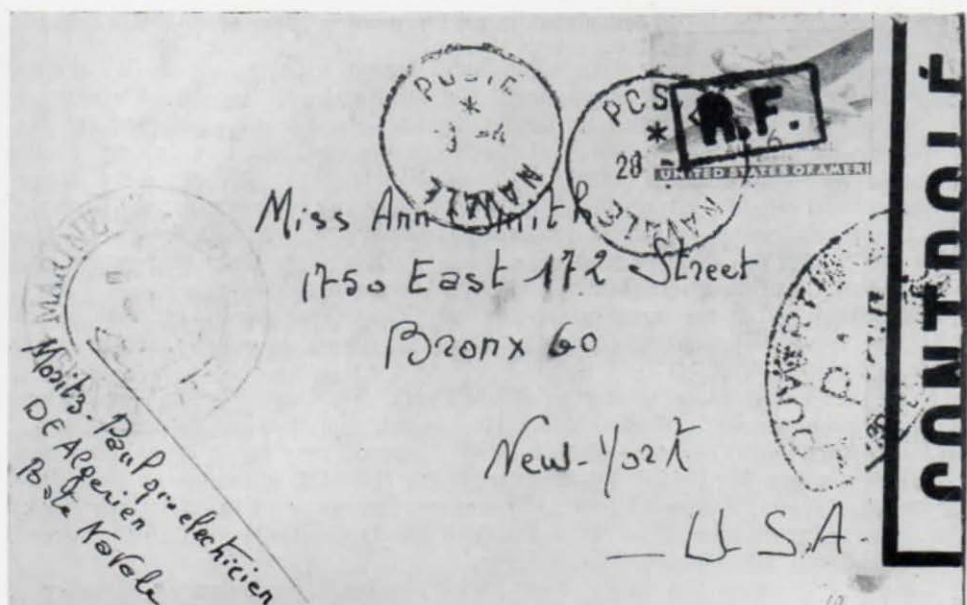 POSTE
* 
-4
NAVALE
POSTE
*
28
NAVALE
R.F.
6
UNITED STATES OF AMERI
Miss Ann Smith
1750 East 172 Street
Bronx 60
New-York
U.S.A.
MARINE
Moritz Paul
électricien
DE Algerien
Poste Navale
OUVERT
CONTROLÉ